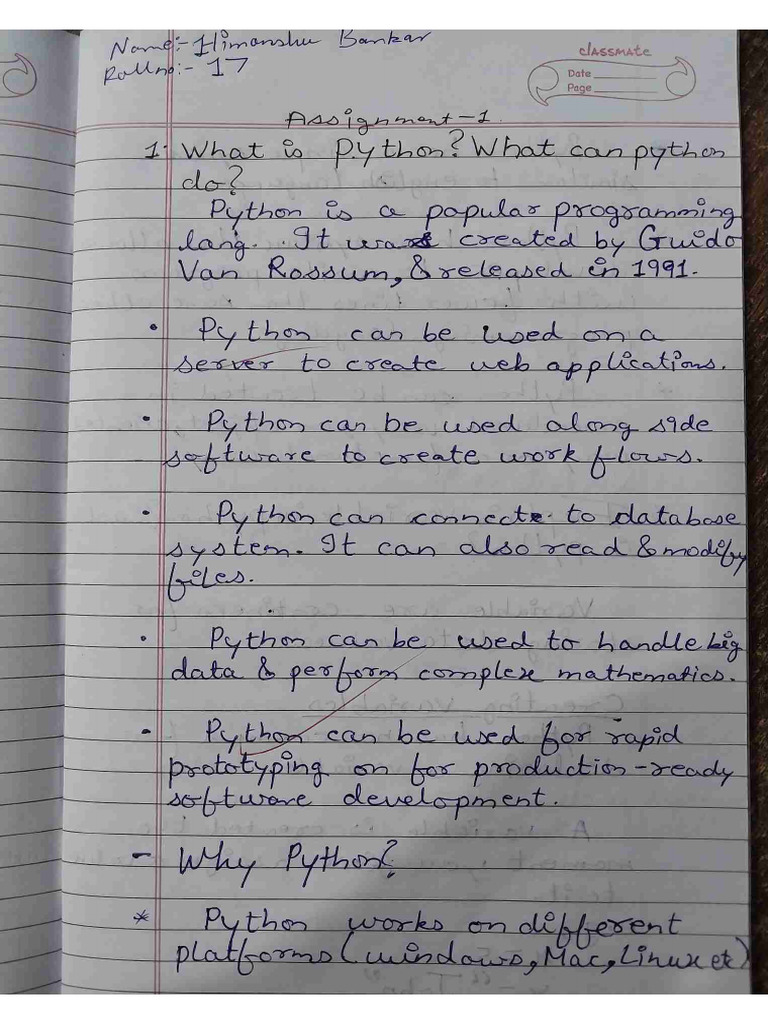 Name:- Himanshu Bankar
Rollno:- 17
classmate
Date
Page
Assignment-1.
1. What is python? What can python
do?
Python is a popular programming
lang. It was created by Guido
Van Rossum, & released in 1991.
• Python can be used on a
server to create web applications.
• Python can be used along side
software to create work flows.
• Python can connect to database
system. It can also read & modify
files.
• Python can be used to handle big
data & perform complex mathematics.
• Python can be used for rapid
prototyping on for production-ready
software development.
- Why Python?
* Python works on different
platforms (windows, Mac, Linux etc)